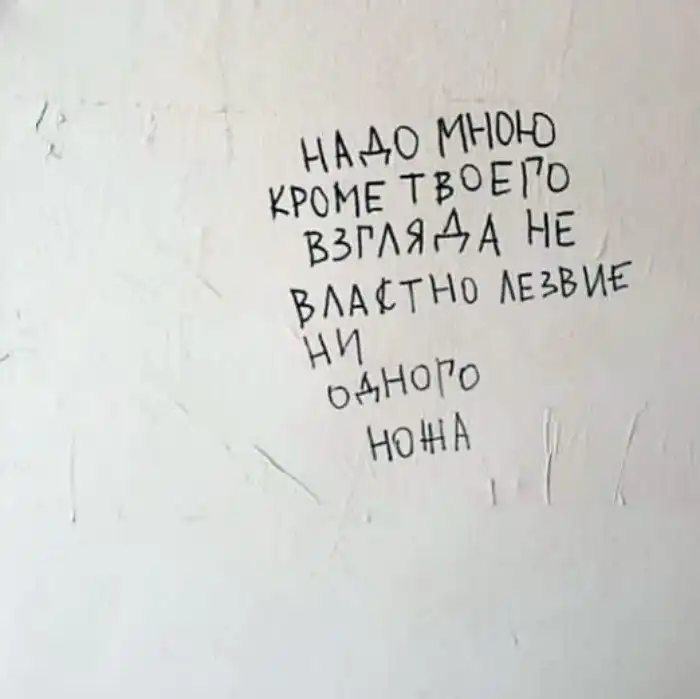 НАДО МНОЮ
КРОМЕ ТВОЕГО
ВЗГЛЯДА НЕ
ВЛАСТНО ЛЕЗВИЕ
НИ
ОДНОГО
НОЖА